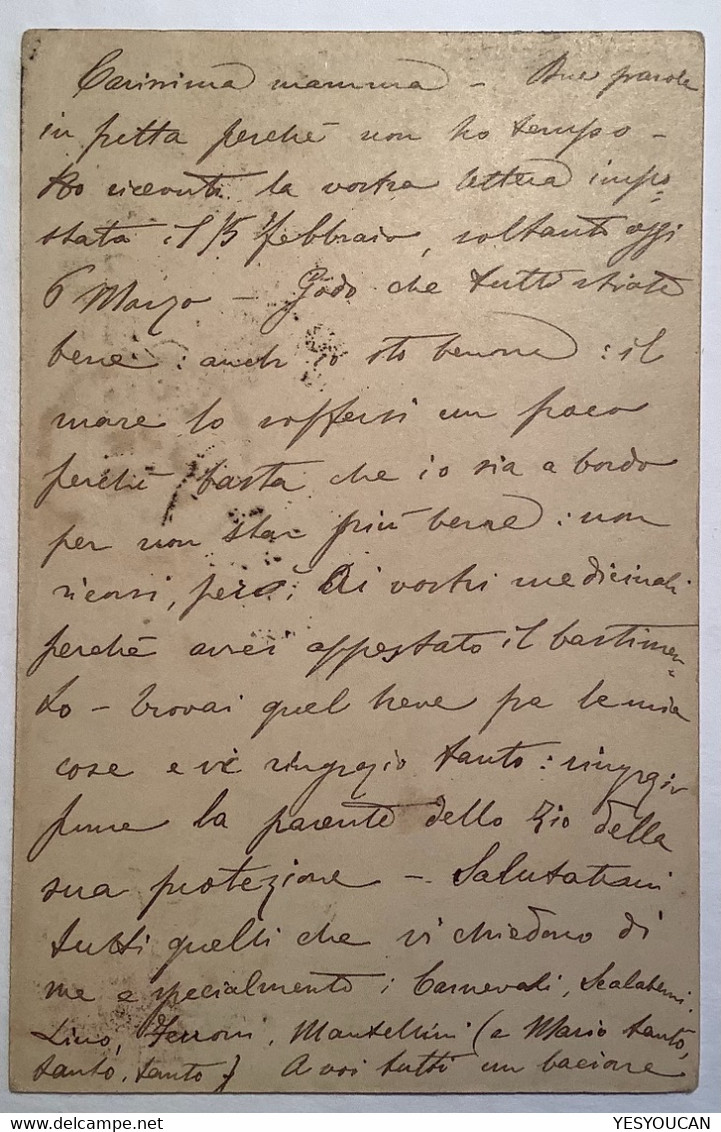 Carissima mamma – Due parole
in fretta perchè non ho tempo –
Ho ricevuto la vostra lettera impo=
stata il 15 febbraio, soltanto oggi
6 Marzo – Godo che tutti stiate
bene : anch'io sto benone : il
mare lo soffersi un poco
perchè basta che io sia a bordo
per non star più bene : non
ricorsi, però, ai vostri medicinali
perchè avrei appestato il bastimen=
to – Trovai quel neve fra le mie
cose e vi ringrazio tanto : ringrazio
pure la parente dello Zio della
sua protezione – Salutatemi
tutti quelli che vi chiedono di
me e specialmente i Carnevali,
Lino, Ferroni, Mantellini (e Mario tanto,
tanto, tanto) A voi tutti un bacione
YESYOUCAN